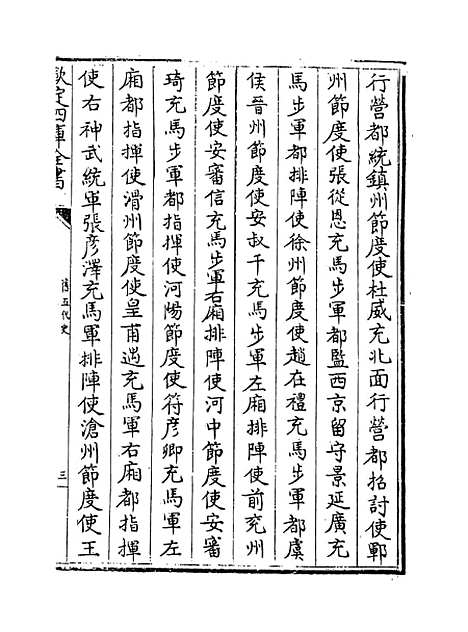 行營都統鎮州節度使杜威充北面行營都招討使鄆
州節度使張從恩充馬步軍都監西京留守景延廣充
馬步軍都排陣使徐州節度使趙在禮充馬步軍都虞
侯晉州節度使安叔千充馬步軍左廂排陣使前兖州
節度使安審信充馬步軍右廂排陣使河中節度使安審
琦充馬步軍都指揮使河陽節度使符彦卿充馬軍左
廂都指揮使滑州節度使皇甫遇充馬軍右廂都指揮
使右神武統軍張彦澤充馬軍排陣使滄州節度使王
欽定四庫全書
舊五代史
三